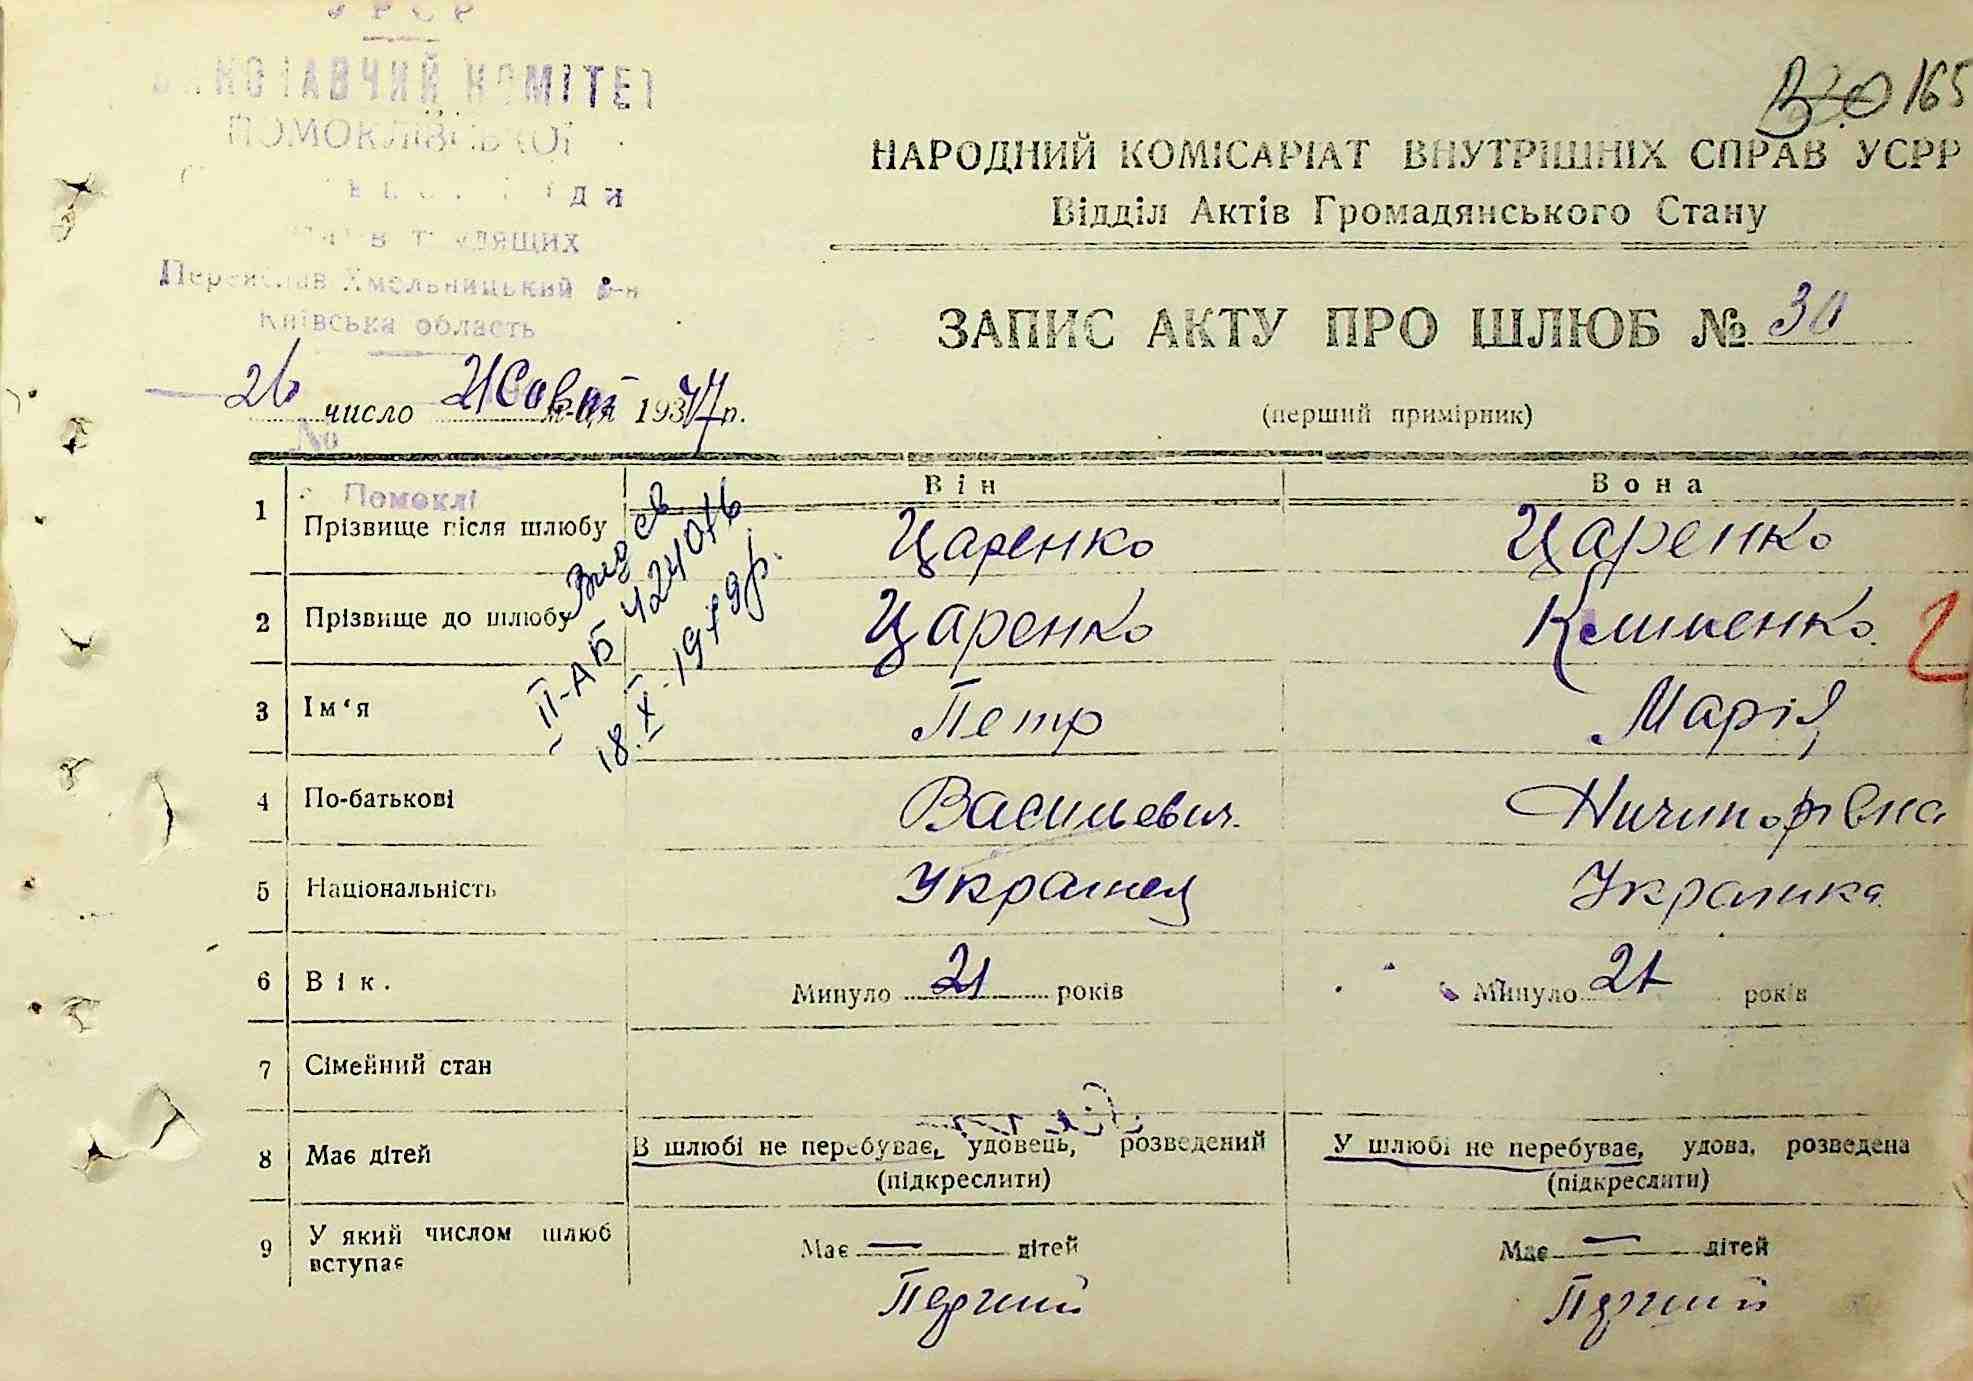 УРСР
ВИКОНАВЧИЙ КОМІТЕТ
ПОМОКЛІВСЬКОЇ
трудящих
Переяслав Хмельницький р-н
Київська область
165
НАРОДНИЙ КОМІСАРІАТ ВНУТРІШНІХ СПРАВ УСРР
Відділ Актів Громадянського Стану
ЗАПИС АКТУ ПРО ШЛЮБ № 30
26 число м-ця 1947 р.
(перший примірник)
№
с Помоклі
Він Вона
1 Прізвище після шлюбу Царенко Царенко
2 Прізвище до шлюбу Царенко Клименко
3 Ім‘я Петр Марія
4 По-батькові Васильевич. Ничипорівна
5 Національність Украинец Украинка
6 Вік. Минуло 21 років Минуло 21 років
7 Сімейний стан
8 Має дітей В шлюбі не перебуває, удовець, розведений У шлюбі не перебуває, удова, розведена
(підкреслити) (підкреслити)
9 У який числом шлюб вступає Має — дітей Має — дітей
Перший Перший
Вид св
II-АБ 424016
18.X.1979р.